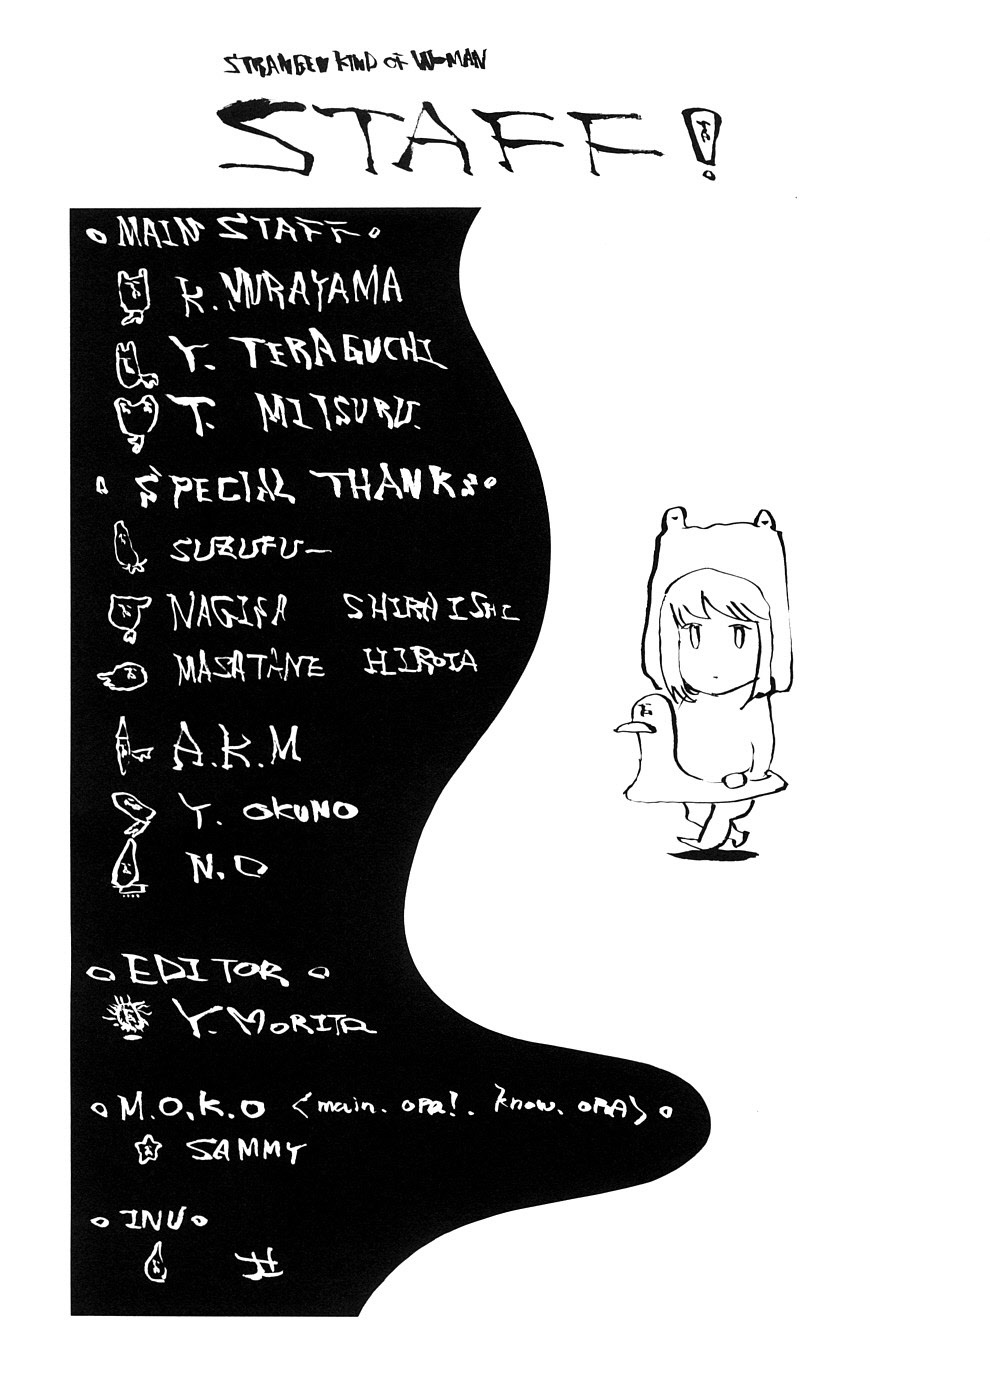 STRANGE KIND OF WOMAN
STAFF!
MAIN STAFF
K. MURAYAMA
Y. TERAGUCHI
T. MITSURU.
SPECIAL THANKS
SUZUFU—
NAGISA SHIRAISHI
MASATANE HIROTA
A.K.M
Y. OKUNO
N.O
EDITOR
Y. MORITA
M.O.K.O <main. ORA!. know. ORA>
SAMMY
INU